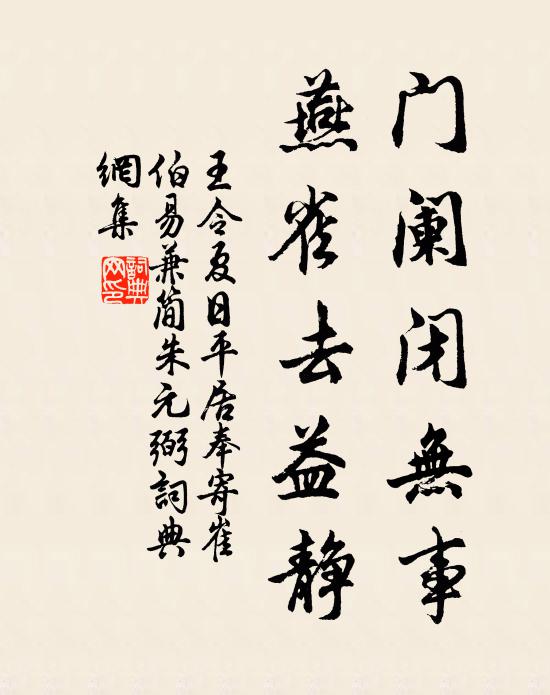 门阑闭無事
燕雀去益静
王令夏日平居奉寄崔
伯易兼简朱元弼詞典
網集
詞典網印